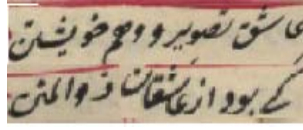 عاشق تصویر و وهم خویشتن
کے بود از عاشقان ذوالمنن